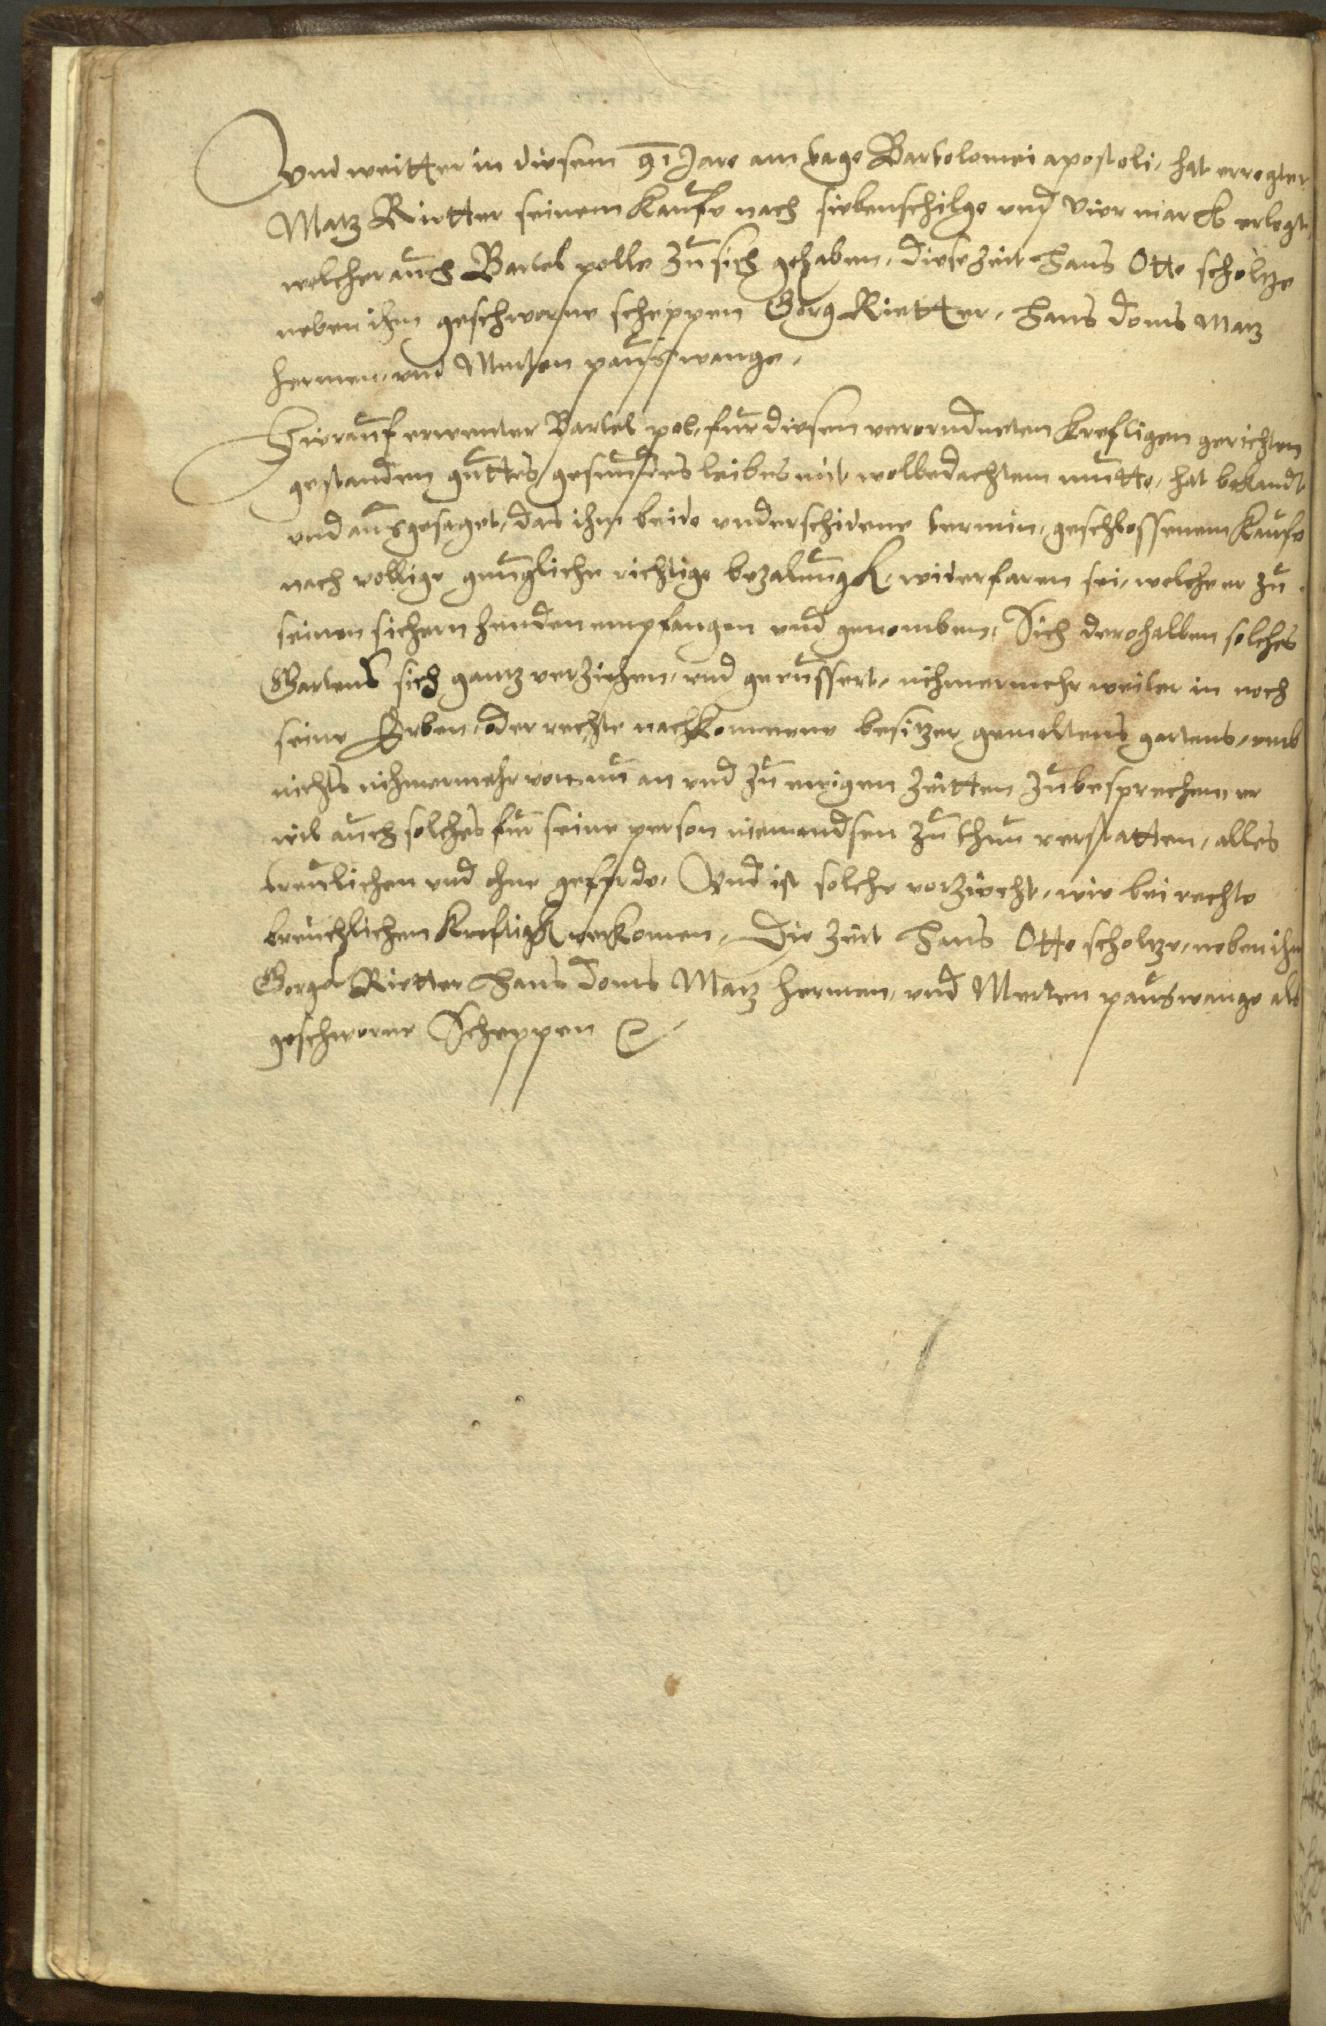 Vnd weitter in diesem 91 Jare am tage Bartolomei apostoli, hat erregter
Matz Rietter seinem Kaufe nach siebenschilge vnd Vier marck erlegt,
welcher auch Bartel polle zu sich gehaben, diese zeit Hans Otto scholtze
neben ihm geschworne scheppen Gorg Rietter, Hans Doms Matz
herman, vnd Merten pauswange,
Hierauf erwenter Bartel pol, fur diesem verorndneten Kreftigen gerichten
gestanden guttes gesundes leibes mit wolbedachtem mutte, hat bekandt
vnd ausgesaget, das ihm beide vnderschidene termin, geschlossenem Kaufe
nach vollige gnugliche richtige bezalungk, widerfaren sei, welche er zu
seinen sichern henden empfangen vnd genomben, Sich derohalben solches
Gartens sich gantz verziehen, vnd geeussert, nihmermehr weiter in noch
seine Erben, oder rechte nachkomene besitzer gemeltens gartens, vmb
nichts nihmermehr von nu an vnd zu ewigen zeitten zu besprechen, er
wil auch solches fur seine person niemandsen zu thun verstatten, alles
treulichen vnd ohne geferde, Vnd ist solche vorziecht, wie bei rechte
breuchlichen Kreftigk verkomen, Die zeit Hans Otto scholtze, neben ihm
Gorge Rietter Hans Doms Matz herman, vnd Merten pauswange als
geschworne Scheppen